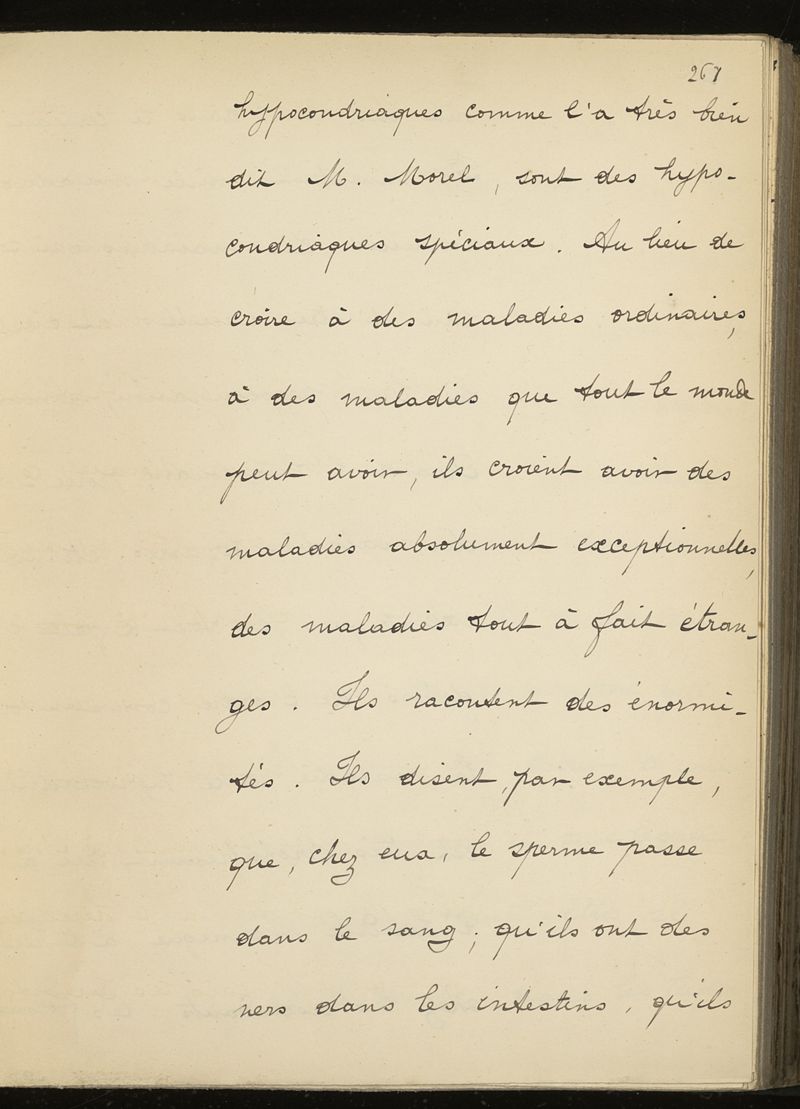 267
hypocondriaques comme l'a très bien
dit M. Morel, sont des hypo-
condriaques spéciaux. Au lieu de
croire à des maladies ordinaires,
à des maladies que tout le monde
peut avoir, ils croient avoir des
maladies absolument exceptionnelles,
des maladies tout à fait étran-
ges. Ils racontent des énormi-
tés. Ils disent, par exemple,
que, chez eux, le sperme passe
dans le sang; qu'ils ont des
vers dans les intestins, qu'ils